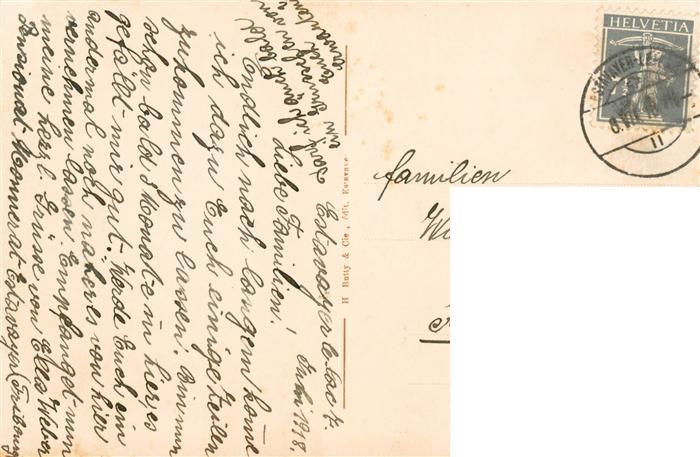 Estavayer le lac 7.
Juli 1918.
Liebe Familien!
Endlich nach langem kome
ich dazu Euch einige Zeilen
zukommen zu lassen. Bin nun
schon bald 3 Monate in hier, es
gefällt mir gut. Werde Euch ein
andermal noch näheres von hier
vernehmen lassen. Empfanget nun
meine herzl. Grüsse von Elsa Weber
Pensionat Monnerat Estavayer, Fribourg
auch bald
von
Euch
H Butty & Cie, édit. Estavayer
HELVETIA
familien